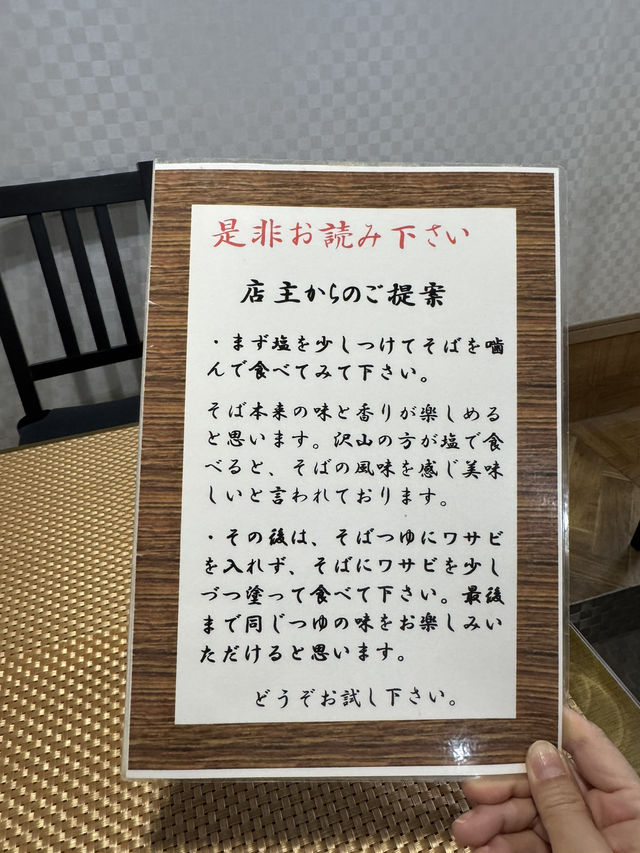 是非お読み下さい
店主からのご提案
・まず塩を少しつけてそばを噛
んで食べてみて下さい。
そば本来の味と香りが楽しめる
と思います。沢山の方が塩で食
べると、そばの風味を感じ美味
しいと言われております。
・その後は、そばつゆにワサビ
を入れず、そばにワサビを少し
づつ塗って食べて下さい。最後
まで同じつゆの味をお楽しみい
ただけると思います。
どうぞお試し下さい。